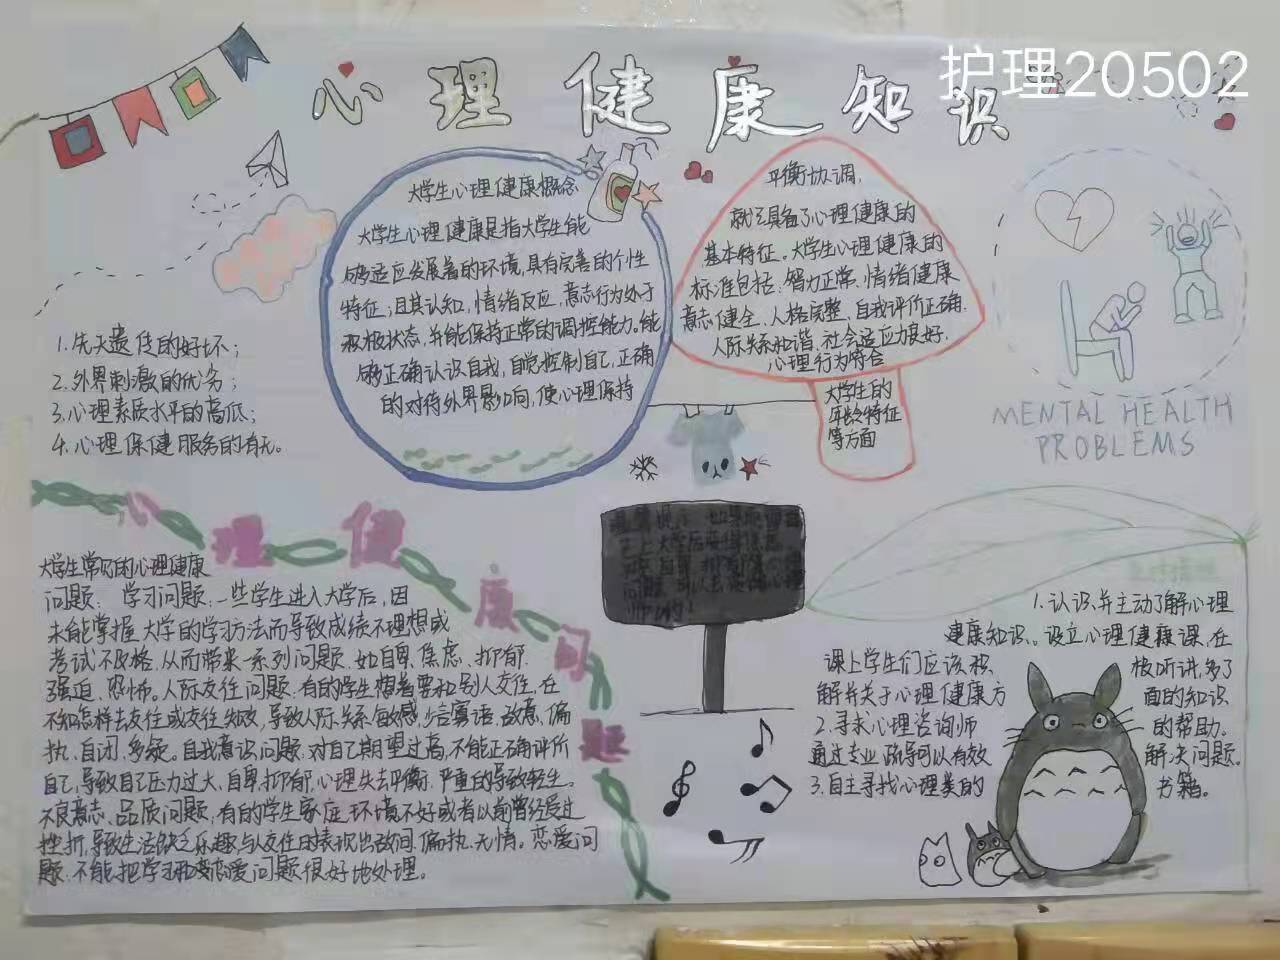 护理20502
心理健康知识
大学生心理健康概念
大学生心理健康是指大学生能
够适应发展着的环境,具有完善的个性
特征;且其认知,情绪反应,意志行为处于
积极状态,并能保持正常的调控能力。能
够正确认识自我,自觉控制自己,正确
的对待外界影响,使心理保持
平衡协调,
就具备了心理健康的
基本特征。大学生心理健康的
标准包括:智力正常,情绪健康
意志健全,人格完整,自我评价正确,
人际关系和谐,社会适应力良好,
心理行为符合
大学生的
年龄特征
等方面
MENTAL HEALTH
PROBLEMS
1.先天遗传的好坏;
2.外界刺激的优劣;
3.心理素质水平的高低;
4.心理保健服务的有无。
心理健康问题
大学生常见的心理健康
问题: 学习问题:一些学生进入大学后,因
未能掌握大学的学习方法而导致成绩不理想或
考试不及格,从而带来一系列问题,如自卑,焦虑,抑郁,
强迫,恐怖。人际交往问题:有的学生想着要和别人交往,在
不知怎样去交往或交往失败,导致人际关系敏感,少言寡语,故意,偏
执,自闭,多疑。自我意识问题:对自己期望过高,不能正确评价
自己,导致自己压力过大,自卑,抑郁,心理失去平衡,严重的导致轻生。
不良意志、品质问题,有的学生家庭环境不好或者以前曾经受过
挫折,导致生活缺乏乐趣,与人交往时表现出敌意,偏执,无情。恋爱问
题,不能把学习和恋爱问题很好地处理。
1.认识并主动了解心理
健康知识。设立心理健康课,在
课上学生们应该积极听讲,多了
解并关于心理健康方面的知识
2.寻求心理咨询师的帮助。
通过专业疏导可以有效解决问题。
3.自主寻找心理类的书籍。